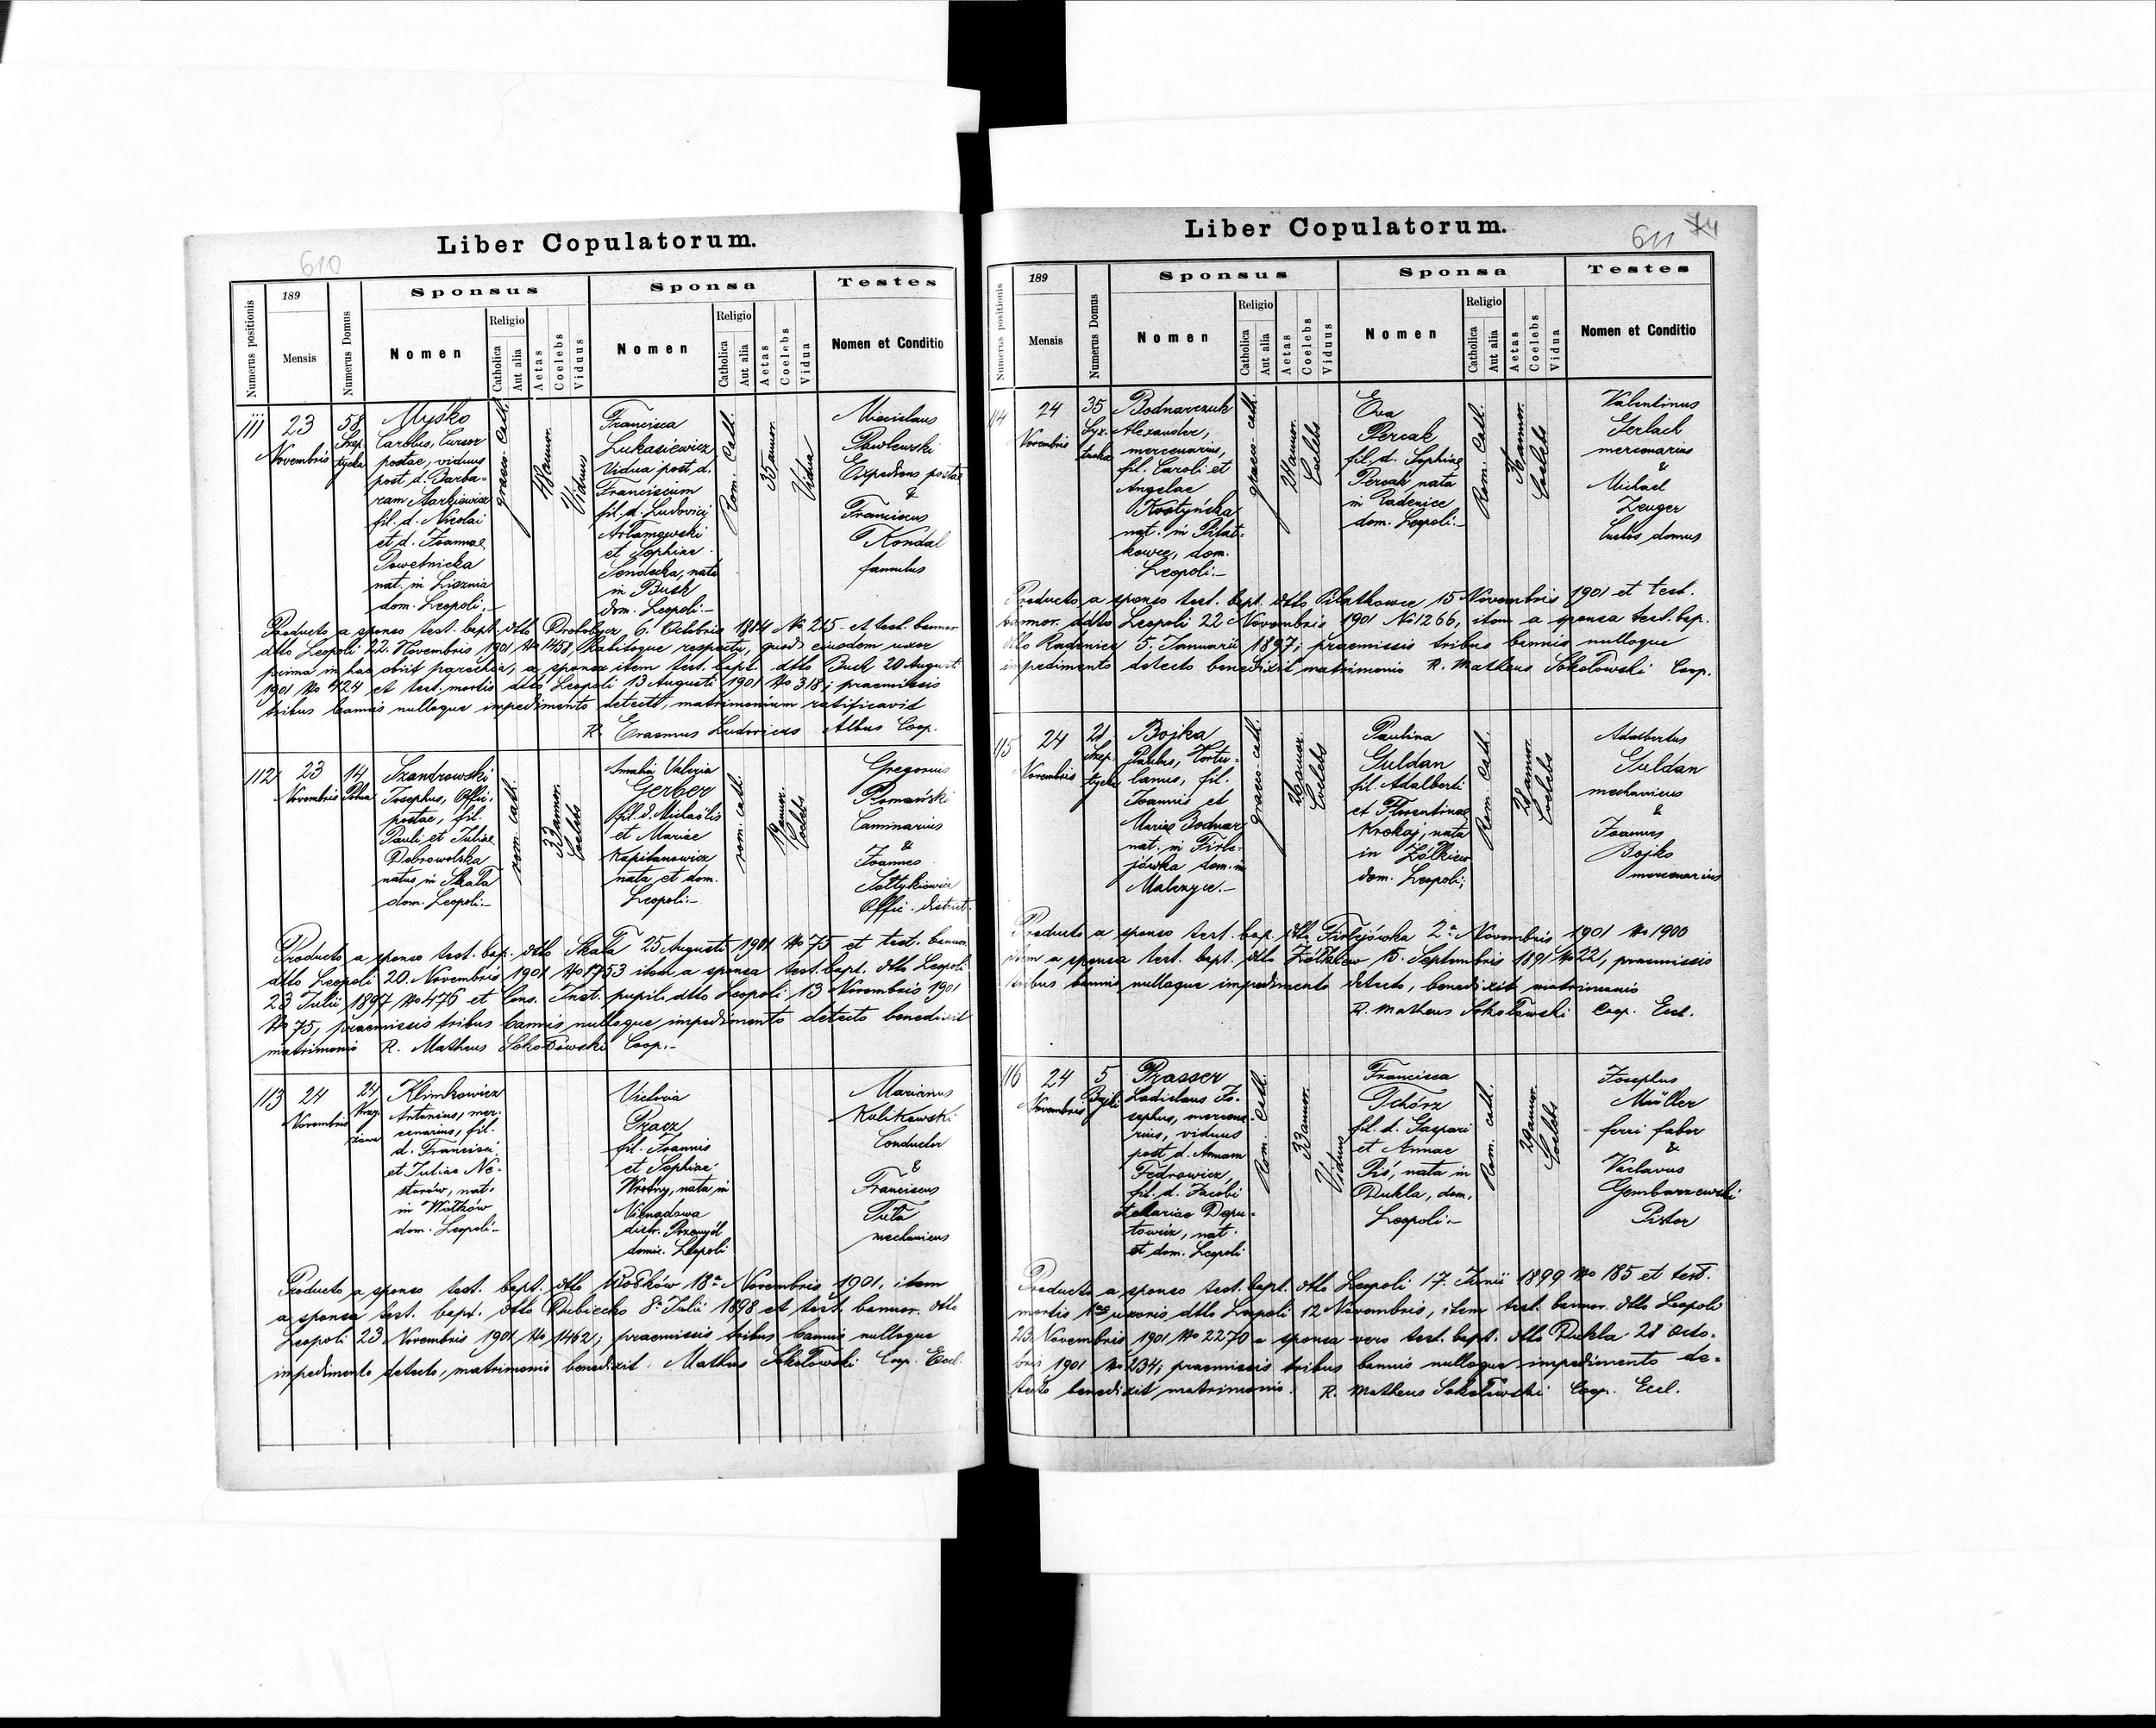 610
Liber Copulatorum.
Numerus positionis
189
Mensis
Numerus Domus
Sponsus
Nomen
Religio
Catholica
Aut alia
Aetas
Coelebs
Viduus
Sponsa
Nomen
Religio
Catholica
Aut alia
Aetas
Coelebs
Vidua
Testes
Nomen et Conditio
111
23
Novembris
58
Szep
tycka
Mysko
Carolus, Cursor
postae, viduus
post d. Barba-
ram Markiewicz
fil. d. Nicolai
et d. Joannae
Powetnicka
nat. in Lisznia
dom. Leopoli.-
graeco-cath.
48 annor.
Viduus
Francisca
Łukasiewicz
Vidua post. d.
Franciscum
fil. d. Ludovici
Artamowski
et Sophiae
Sendecka, nata
in Busk
dom. Leopoli.-
Rom. Cath.
35 annor.
Vidua
Miecislaus
Pawlewski
Expediens postae
&
Franciscus
Kondal
famulus
Producto a sponso test. bapt. dtto Drohobycz 6. Octobris 1884 No 215 et test. bannor.
dtto Leopoli 22. Novembris 1901 No 1438, habitoque respectu, quod eiusdem uxor
prima in hac obiit parochia, a sponsa item test. bapt. dtto Busk 20 August.
1901 No 424 et test. mortis dtto Leopoli 13 Augusti 1901 No 318; praemissis
tribus bannis nulloque impedimento detecto, matrimonium ratificavit
R. Erasmus Ludovicus Albus Coop.
112
23
Novembris
14
Szandrowski
Josephus, Offic.
postae, fil.
Pauli et Juliae
Dobrowolska
natus in Skała
dom. Leopoli.-
rom. cath.
33 annor.
Coelebs
Amalia Valeria
Gerber
fil. d. Michaëlis
et Mariae
Kapitanowicz
nata et dom.
Leopoli.-
rom. cath.
19 annor.
Coelebs
Gregorius
Romański
Caminarius
&
Joannes
Sałtykiewicz
Offic. district.
Producto a sponso test. bap. dtto Skała 25 Augusti 1901 No 75 et test. bannor.
dtto Leopoli 20. Novembris 1901 No 1753 item a sponsa test. bapt. dtto Leopoli
23 Julii 1897 No 476 et Cons. Inst. pupil. dtto Leopoli 13 Novembris 1901
No 75, praemissis tribus bannis nulloque impedimento detecto benedixit
matrimonio R. Matheus Sokołowski Coop.-
113
24
Novembris
24
Klimkowicz
Antonius, mer-
cenarius, fil.
d. Francisci
et Juliae Ne-
storów, nat.
in Witków
dom. Leopoli.-
Victoria
Pracz
fil. Joannis
et Sophiae
Wrotny, nata in
Nienadowa
distr. Przemyśl
domic. Leopoli
Marianus
Kulikowski
Conductor
&
Franciscus
Tuta
mechanicus
Producto a sponso test. bapt. dtto Witków 18a Novembris 1901, item
a sponsa test. bapt. dtto Dubiecko 8a Julii 1898 et test. bannor. dtto
Leopoli 23. Novembris 1901 No 1462; praemissis tribus bannis nulloque
impedimento detecto, matrimonio benedixit. Matheus Sokołowski Coop. Eccl.
611 74
Liber Copulatorum.
Numerus positionis
189
Mensis
Numerus Domus
Sponsus
Nomen
Religio
Catholica
Aut alia
Aetas
Coelebs
Viduus
Sponsa
Nomen
Religio
Catholica
Aut alia
Aetas
Coelebs
Vidua
Testes
Nomen et Conditio
114
24
Novembris
35
Syx-
tuska
Bodnarczuk
Alexander,
mercenarius,
fil. Caroli et
Angelae
Kostyńska
nat. in Piłat-
kowce, dom.
Leopoli.-
graeco-cath.
24 annor.
Coelebs
Eva
Percak
fil. d. Sophiae
Percak nata
in Radenice
dom. Leopoli.-
Rom. Cath.
36 annor.
Coelebs
Valentinus
Gerlach
mercenarius
&
Michael
Zeuger
Custos domus
Producto a sponso test. bapt. dtto Piłatkowce 15 Novembris 1901 et test.
bannor. ddto Leopoli 22 Novembris 1901 No 1266, item a sponsa test. bap.
dtto Radenice 5. Januarii 1897; praemissis tribus bannis nulloque
impedimento detecto benedixit matrimonio R. Matheus Sokołowski Coop.
115
24
Novembris
21
Szep-
tycka
Bojka
Paulus, Hortu-
lanus, fil.
Joannis et
Mariae Bodnar
nat. in Firle-
jówka dom. in
Malczyce.-
graeco-cath.
26 annor.
Coelebs
Paulina
Guldan
fil. Adalberti
et Florentinae
Krokaj, nata
in Żółkiew
dom. Leopoli;
Rom. Cath.
28 annor.
Coelebs
Adalbertus
Guldan
mechanicus
&
Joannes
Bojko
mercenarius
Producto a sponso test. bap. dtto Firlejówka 2a Novembris 1901 No 1900
item a sponsa test. bapt. dtto Żółkiew 15. Septembris 1891 No 22, praemissis
tribus bannis nulloque impedimento detecto, benedixit matrimonio
R. Matheus Sokołowski Coop. Eccl.
116
24
Novembris
5
Prasser
Ladislaus Jo-
sephus, mercena-
rius, viduus
post d. Annam
Fedrowicz,
fil. d. Jacobi
et Mariae Depu-
towicz, nat.
et dom. Leopoli
Rom. Cath.
33 annor.
Viduus
Francisca
Tchórz
fil. d. Gaspari
et Annae
Piś, nata in
Dukla, dom.
Leopoli.-
Rom. cath.
29 annor.
Coelebs
Josephus
Müller
ferri faber
&
Vaclavus
Gembarzewski
Pistor
Producto a sponso test. bapt. dtto Leopoli 17. Junii 1899 No 185 et test.
mortis 1ae uxoris dtto Leopoli 12 Novembris, item test. bannor. dtto Leopoli
23. Novembris 1901 No 2270 a sponsa vero test. bapt. dtto Dukla 28 Octo-
bris 1901 No 234; praemissis tribus bannis nulloque impedimento de-
tecto benedixit matrimonio. R. Matheus Sokołowski Coop. Eccl.